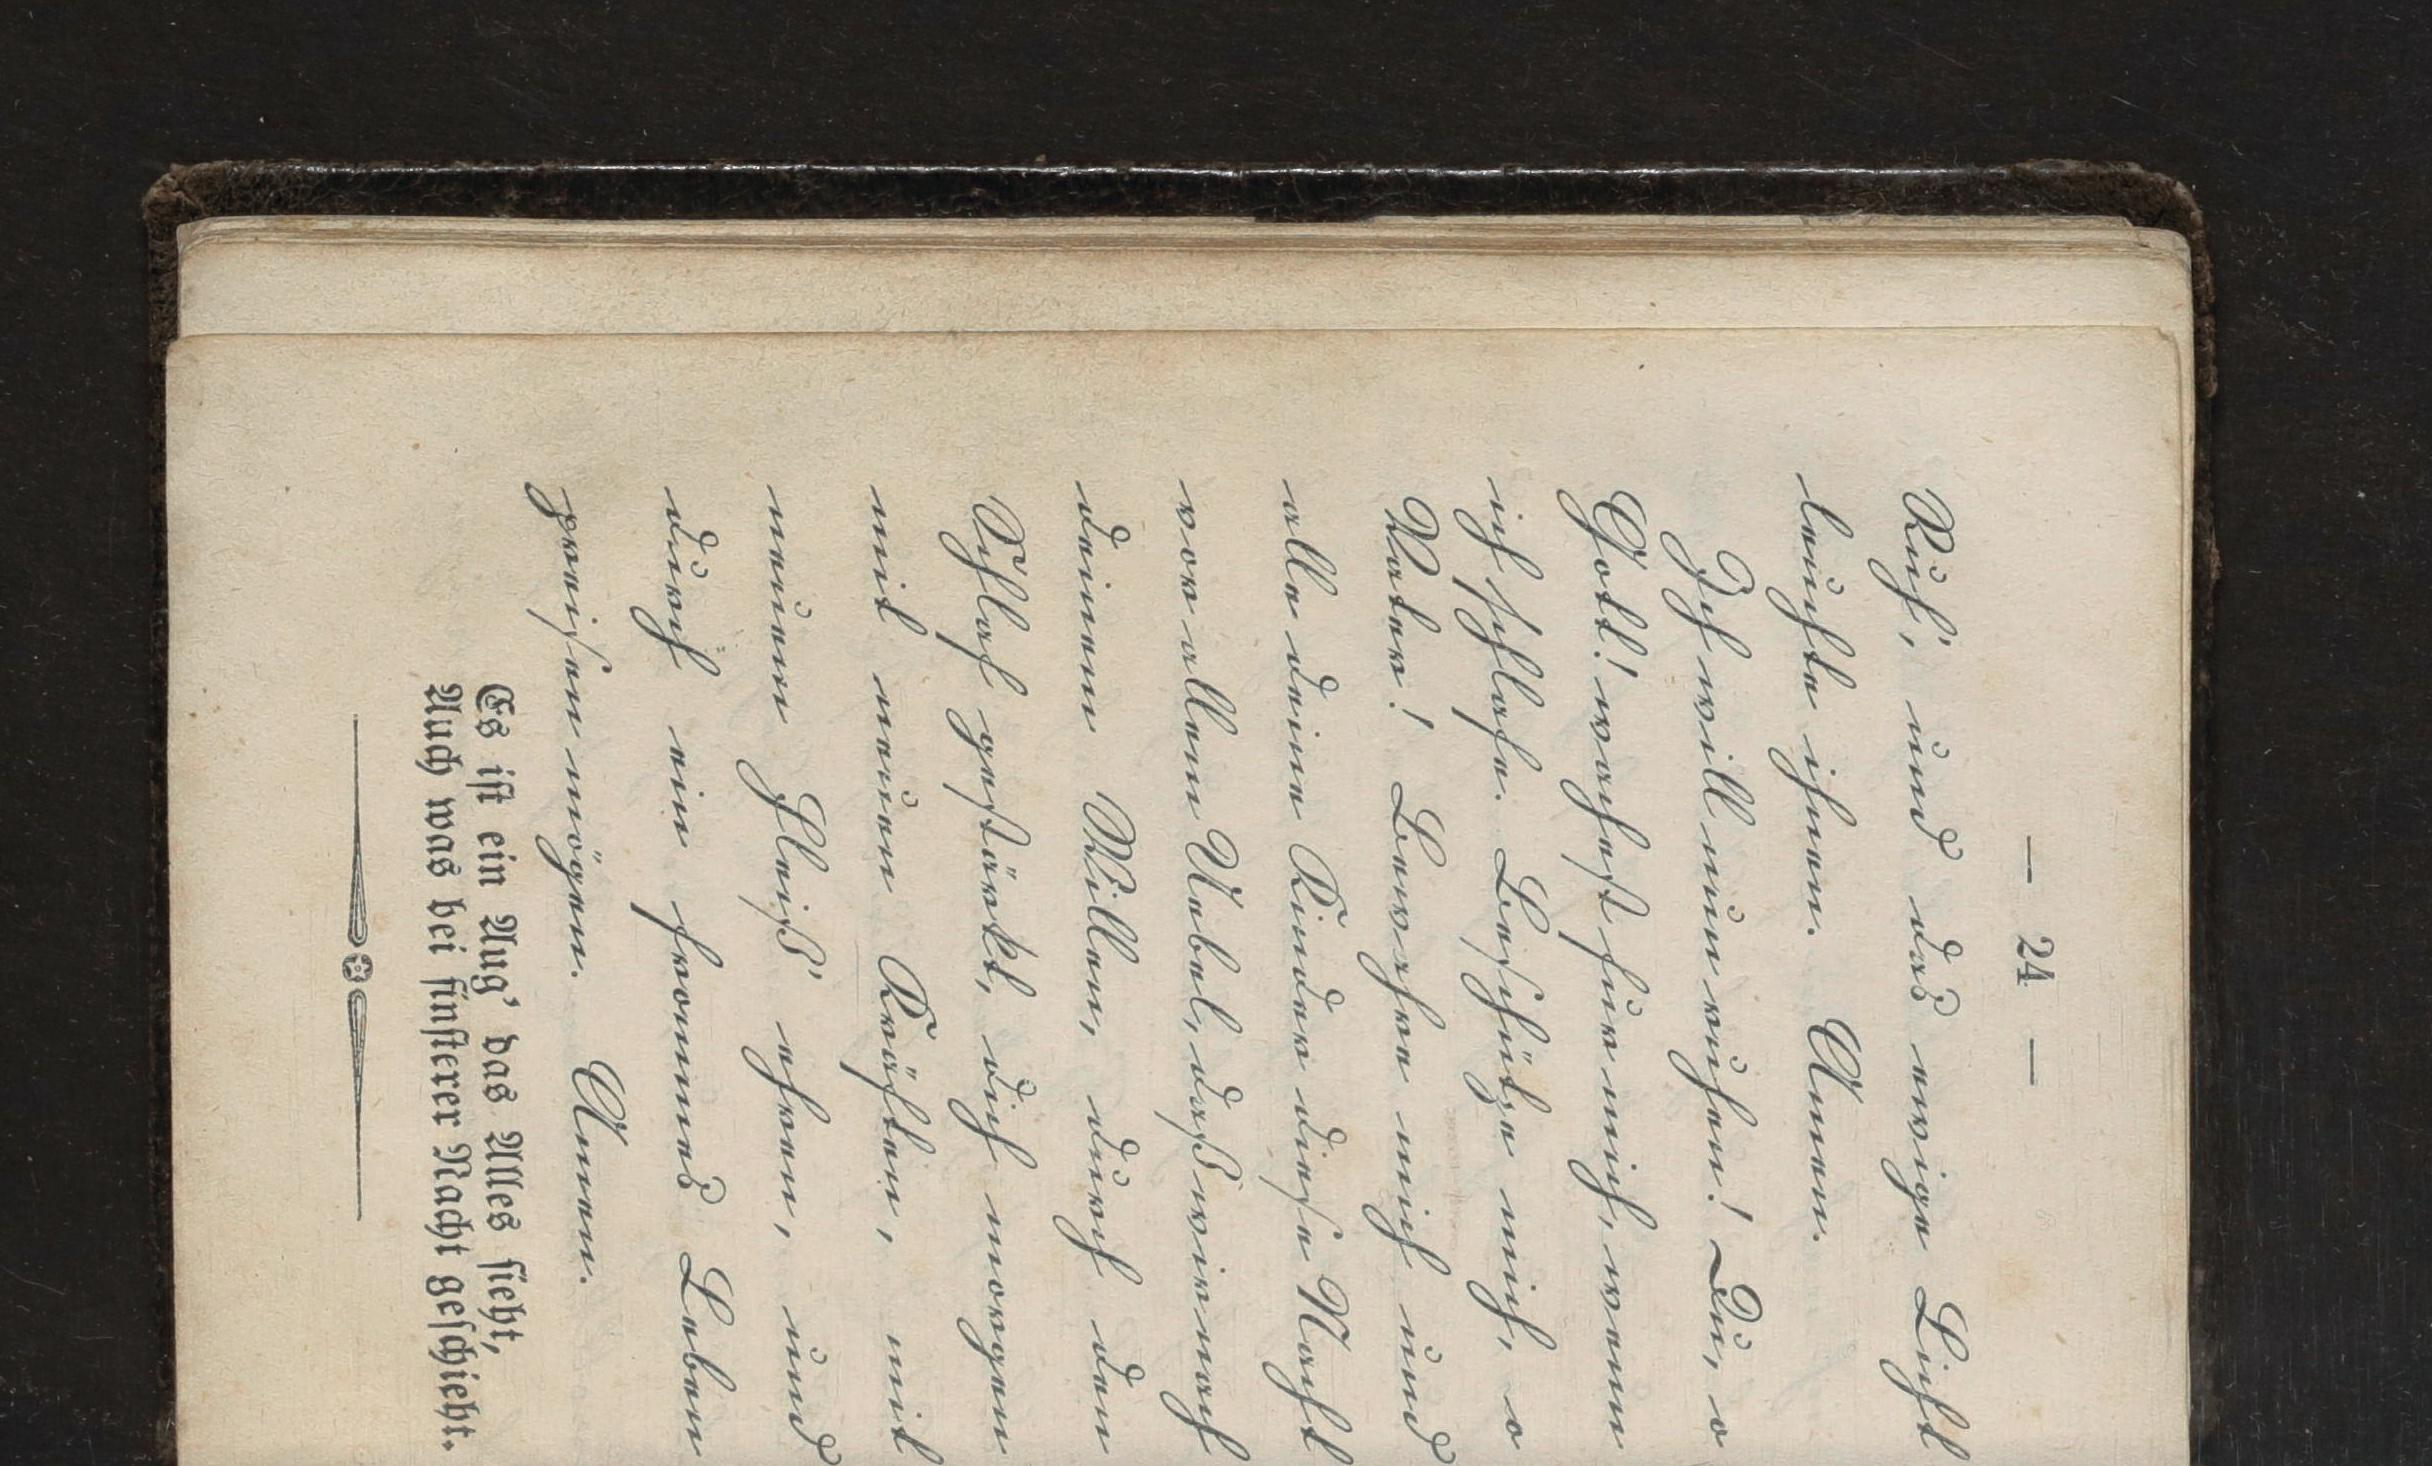 — 24 —
Ruh', und das ewige Licht
leuchte ihnen. Amen.
Ich will nun ruhen! Du, o
Gott! wachest für mich, wenn
ich schlafe. Beschütze mich, o
Vater! Bewahre mich und
alle deine Kinder diese Nacht
vor allem Uebel, daß wir nach
deinem Willen, durch den
Schlaf gestärkt, dich morgen
mit neuen Kräften, mit
neuem Fleiß' ehren, und
durch ein frommes Leben
preisen mögen. Amen.
Es ist ein Aug' das Alles sieht,
Auch was bei finsterer Nacht geschieht.